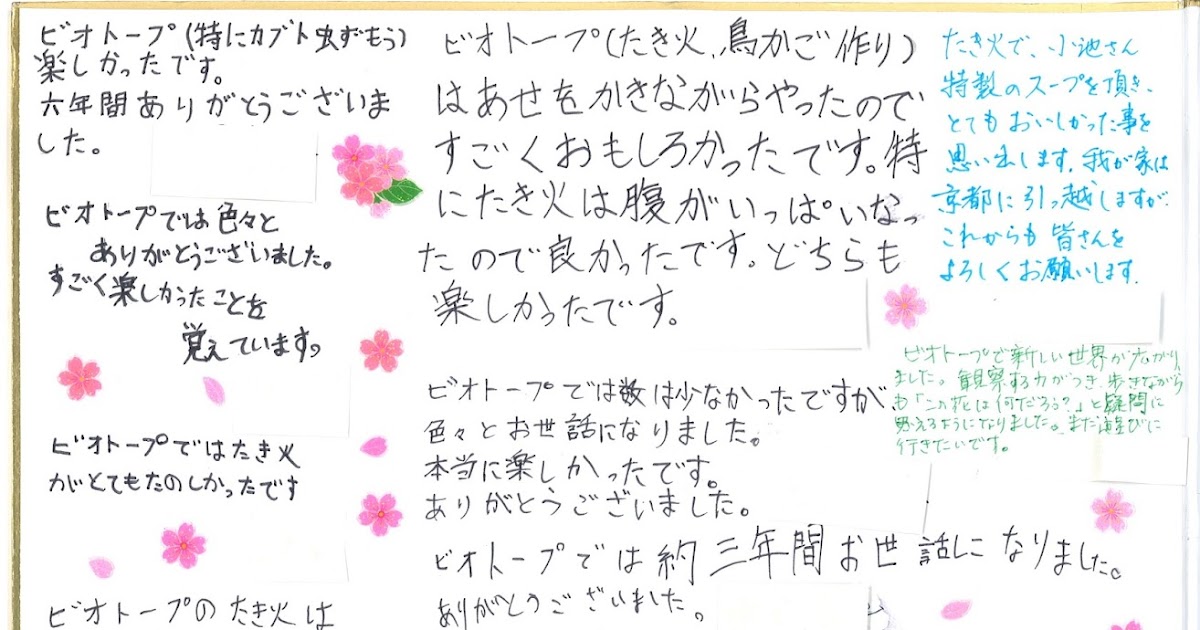 ビオトープ(特にカブト虫ずもう)
楽しかったです。
六年間ありがとうございま
した。
ビオトープでは色々と
ありがとうございました。
すごく楽しかったことを
覚えています。
ビオトープではたき火
がとてもたのしかったです
ビオトープのたき火は
ビオトープ(たき火、鳥かご作り)
はあせをかきながらやったので
すごくおもしろかったです。特
にたき火は腹がいっぱいなっ
たので良かったです。どちらも
楽しかったです。
ビオトープでは数は少なかったですが、
色々とお世話になりました。
本当に楽しかったです。
ありがとうございました。
ビオトープでは約三年間お世話しになりました。
ありがとうございました。
たき火で、小池さん
特製のスープを頂き、
とてもおいしかった事を
思い出します。我が家は
京都に引っ越しますが、
これからも皆さんを
よろしくお願いします。
ビオトープで新しい世界が広がり
ました。観察する力がつき、歩きながら
も「この花は何だろう?」と疑問に
思えるようになりました。また遊びに
行きたいです。